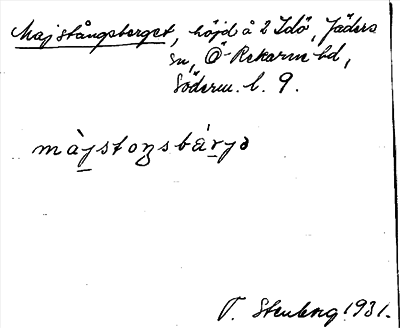 Majstångsberget, höjd å 2 Idö, Jäders
sn, Ö-Rekarne hd,
Söderm. l. 9.
màjstoŋsbárjə
T. Stenberg 1931.